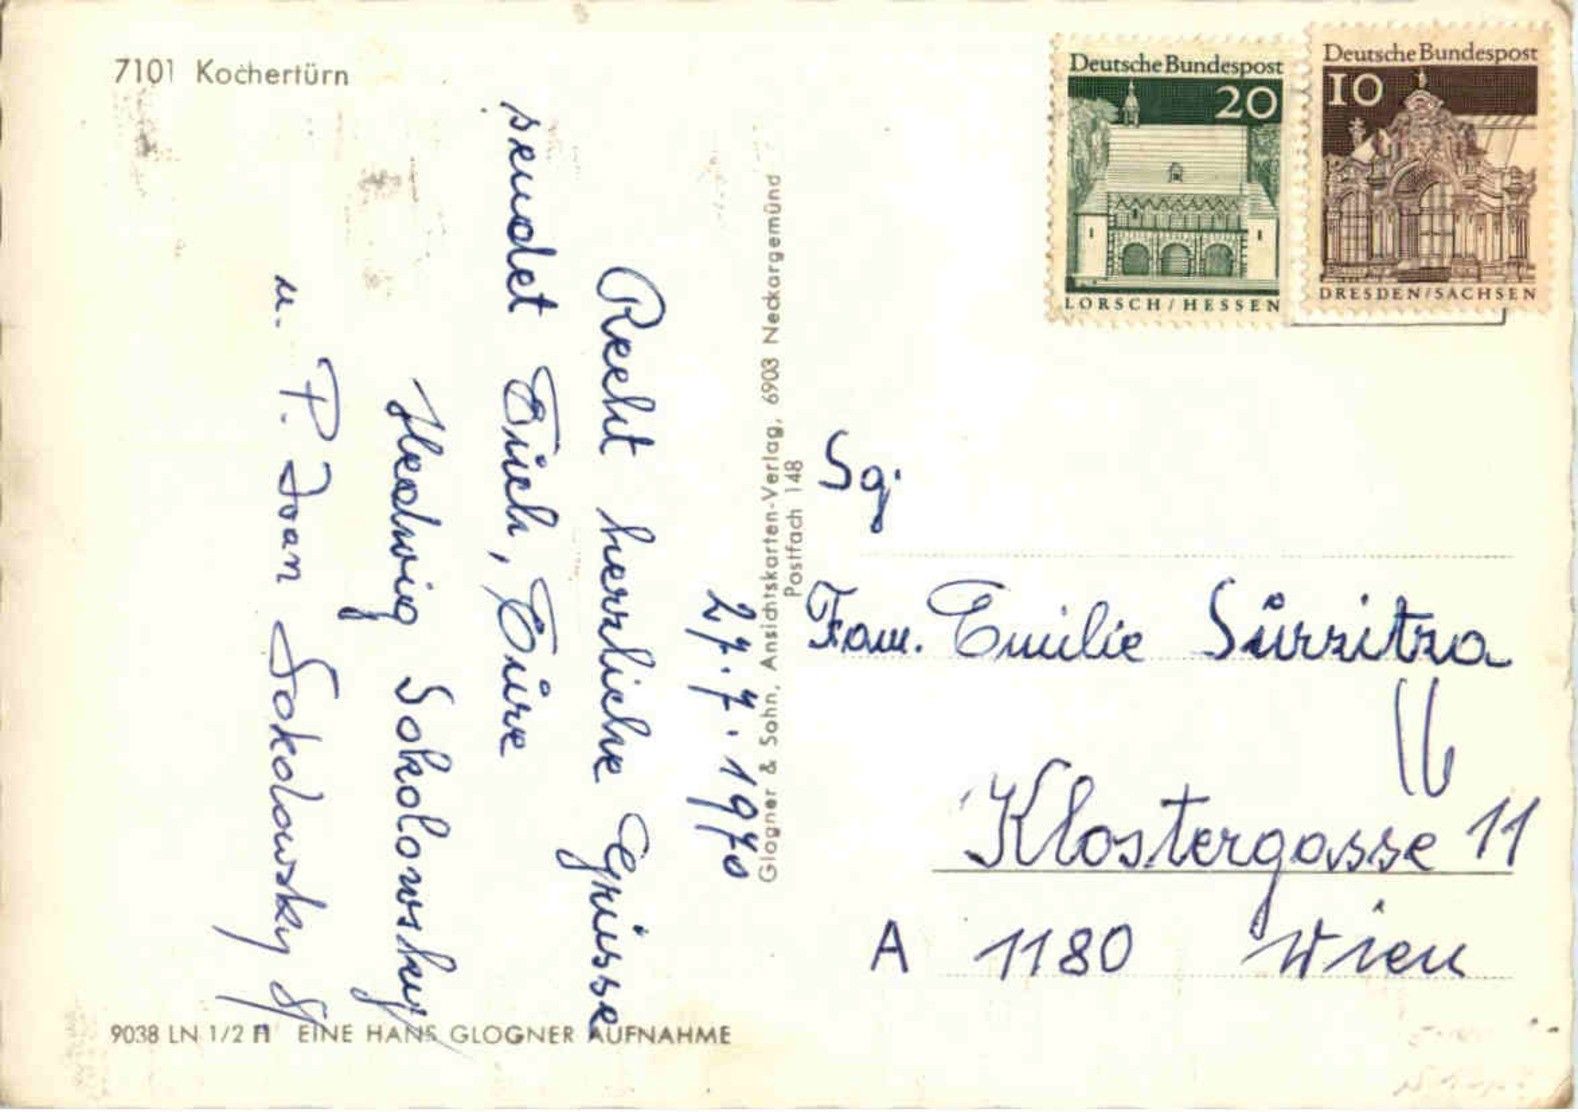 7101 Kochertürn
Deutsche Bundespost
20
LORSCH / HESSEN
Deutsche Bundespost
10
DRESDEN/SACHSEN
27.7.1970
Recht herzliche Grüsse
sendet Euch, Eure
Hedwig Sokolowsky
u. P. Ivan Sokolowsky
Glogner & Sohn, Ansichtskarten-Verlag, 6903 Neckargemünd
Postfach 148
Sg.
Fam. Emilie Surzitza
Klostergasse 11
A 1180 Wien
9038 LN 1/2 H EINE HANS GLOGNER AUFNAHME